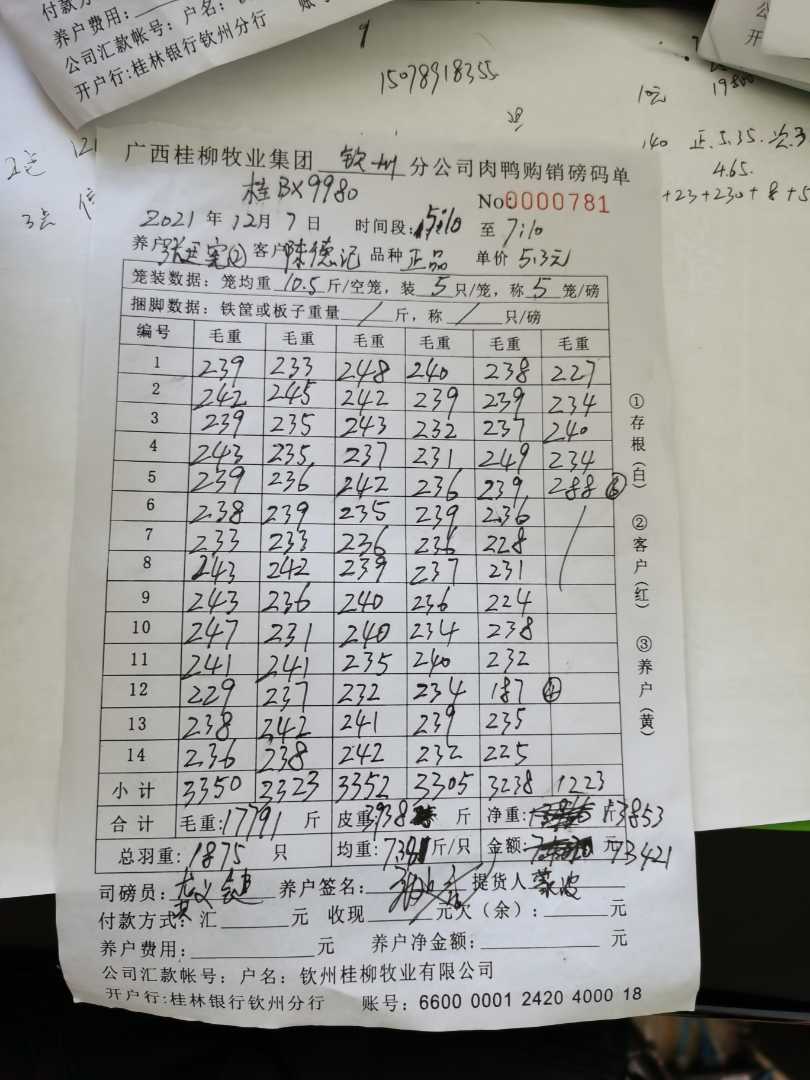 付款方
养户费用:
公司汇款帐号: 户名:
分公司
账号
开户行:桂林银行钦州分行
15078918355
10元
19800
140 正.5.35.次.3
4.65.
+23+230+8+5
3点
广西桂柳牧业集团 钦州 分公司肉鸭购销磅码单
桂BX9980
No:0000781
2021 年 12月 7 日 时间段: 5:10 至 7:10
养户 客户 陈德记 品种 正品 单价 5.3元
笼装数据: 笼均重 10.5 斤/空笼, 装 5 只/笼, 称 5 笼/磅
捆脚数据: 铁筐或板子重量 / 斤, 称 / 只/磅
编号 毛重 毛重 毛重 毛重 毛重 毛重
1 239 233 248 240 238 227
2 242 245 242 239 239 234
3 239 235 243 232 237 240
4 243 235 237 231 249 234
5 239 236 242 236 239 288 ⑥
6 238 239 235 239 236
7 233 233 236 236 228
8 243 242 239 237 231
9 243 236 240 236 224
10 247 231 240 234 238
11 241 241 235 240 232
12 229 237 232 234 187 ④
13 238 242 241 239 235
14 236 238 242 232 225
小计 3350 3323 3352 3305 3238 1223
合计 毛重:17791 斤 皮重:3938 斤 净重: 斤 13853
总羽重: 1875 只 均重: 斤/只 金额: 元 73421
司磅员: 养户签名: 提货人
付款方式: 汇 元 收现 元欠(余): 元
养户费用: 元 养户净金额: 元
公司汇款帐号: 户名: 钦州桂柳牧业有限公司
开户行:桂林银行钦州分行 账号: 6600 0001 2420 4000 18
①存根(白) ②客户(红) ③养户(黄)